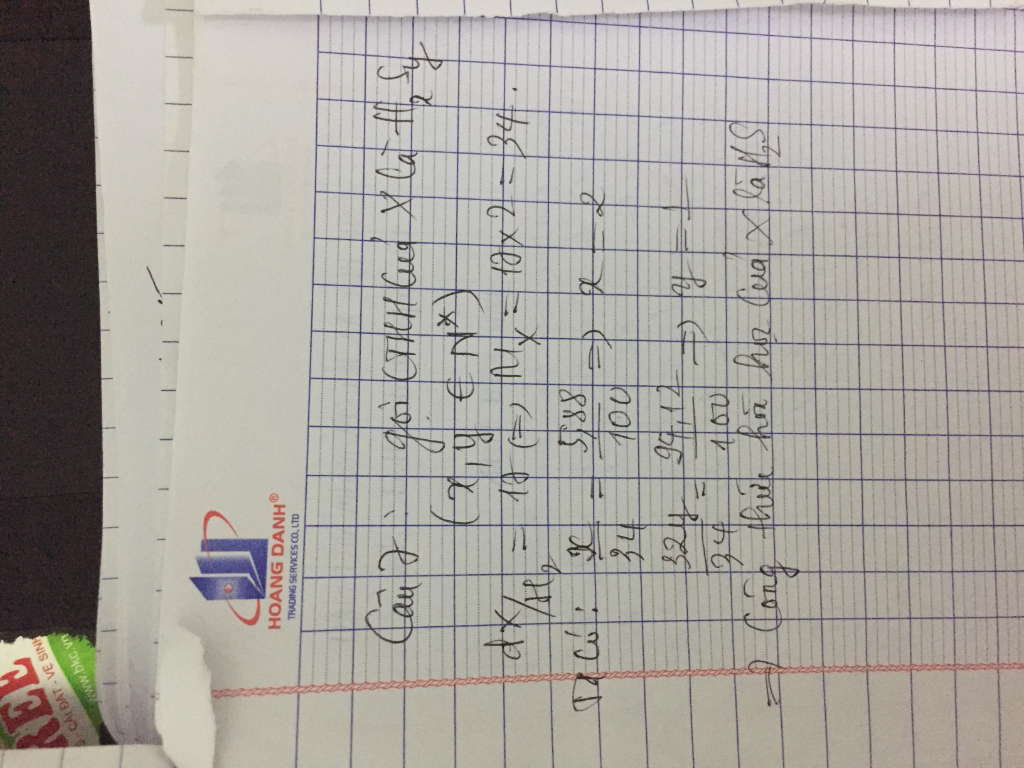 HOANG DANH®
TRADING SERVICES CO., LTD
Câu 7: gọi CTHH của X là HxSy
(x, y ∈ N*)
dX/H2 = 17 (=) MX = 17 x 2 = 34.
Ta có: x/34 = 5,88/100 => x = 2
32y/34 = 94,12/100 => y = 1
=> Công thức hóa học của X là H2S
REE
CÀI ĐẶT - VỆ SINH